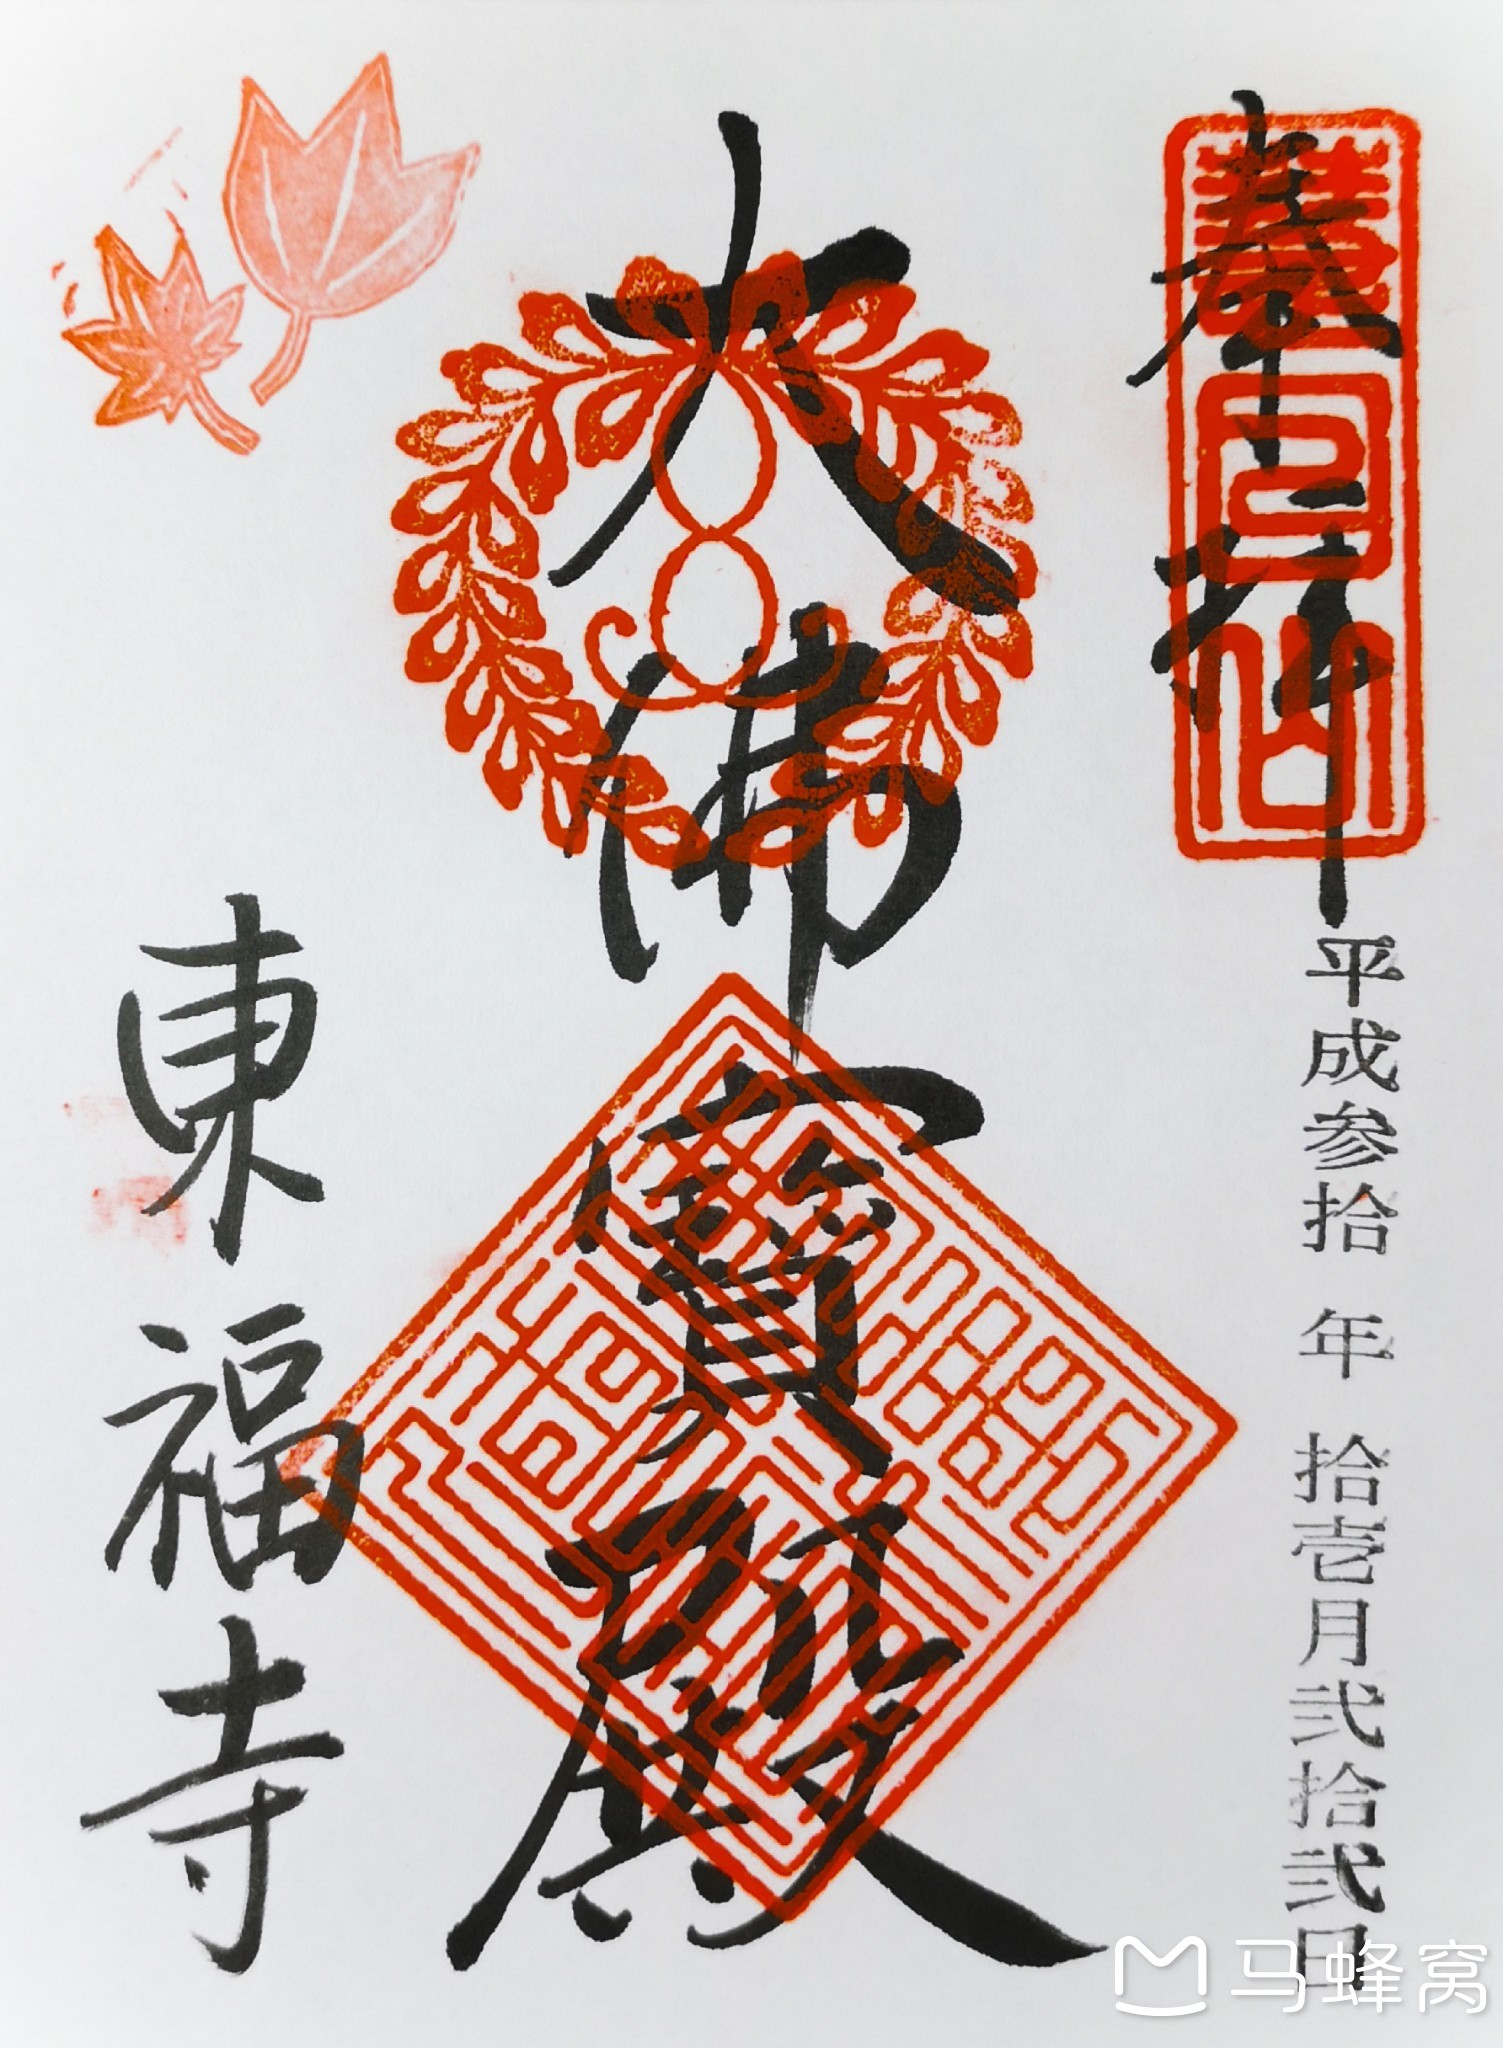 奉拝
慧日山
平成参拾年拾壱月弐拾弐日
大佛寳殿
東福寺
马蜂窝